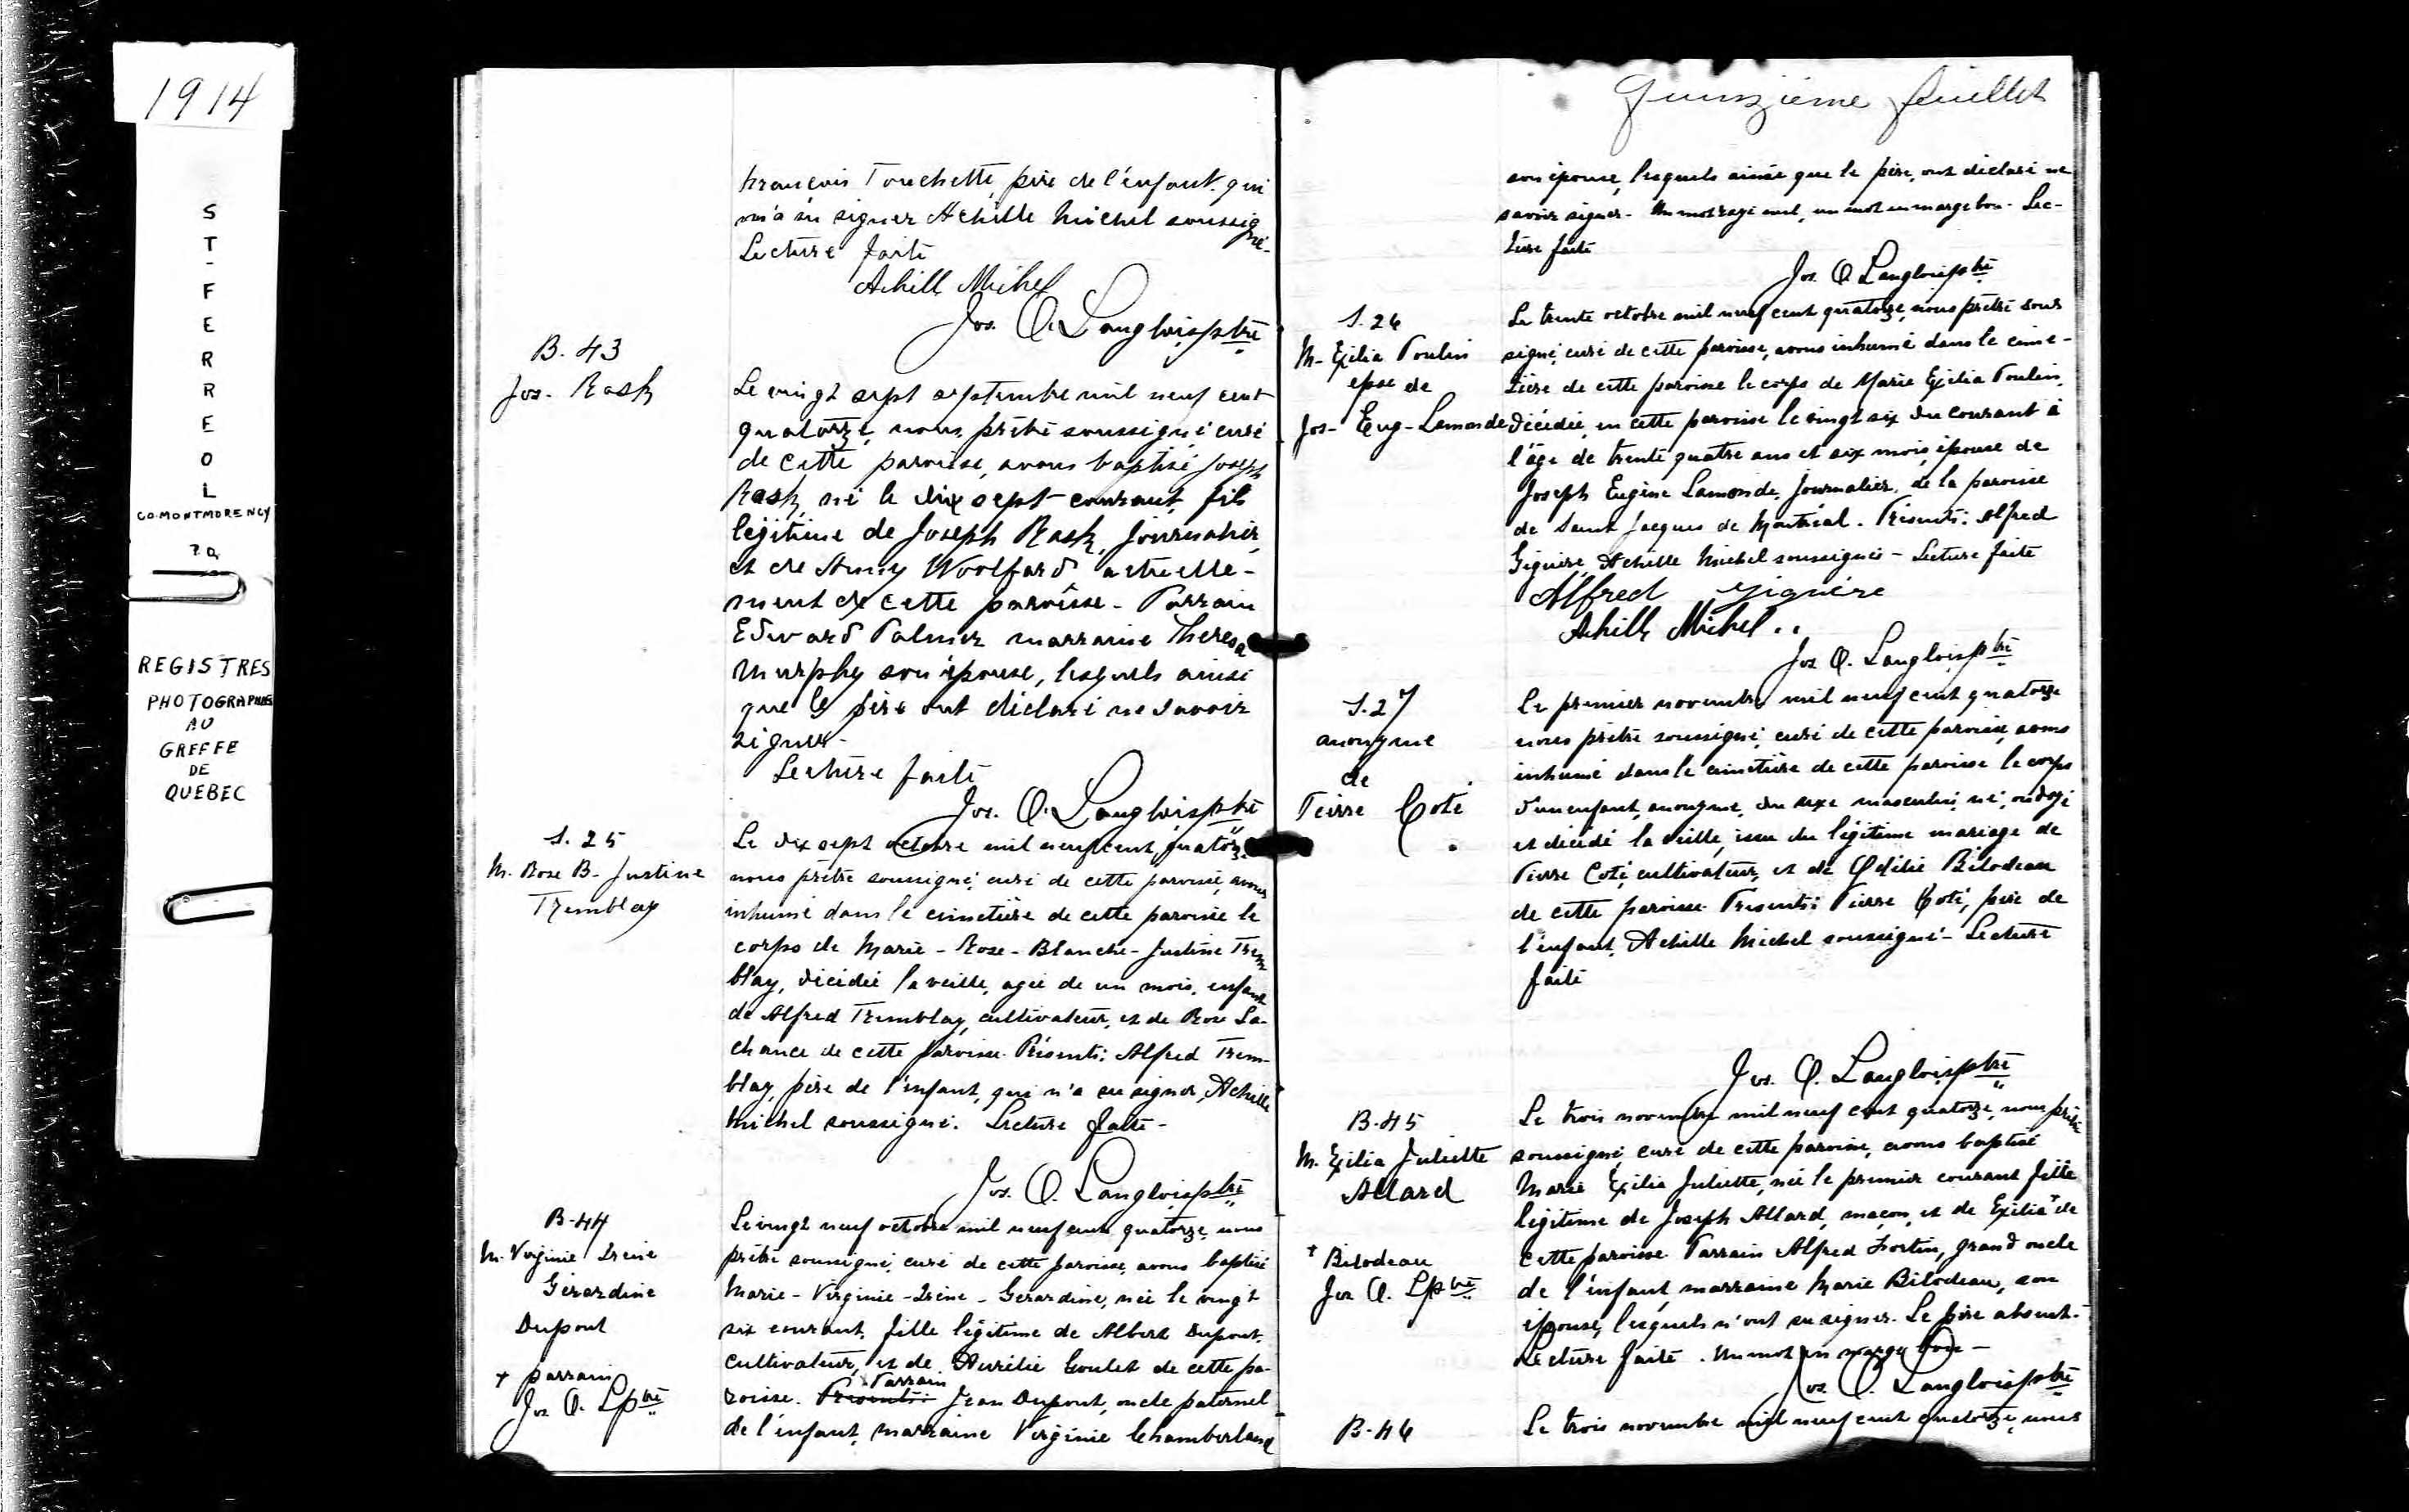 1914
ST-FERREOL
CO. MONTMORENCY
REGISTRES
PHOTOGRAPHIES
AU
GREFFE
DE
QUEBEC
françois Touchette, père de l'enfant, qui
n'a su signer Achille Michel soussigné-
Lecture faite
Achille Michel
Jos. O. Langlois ptre
B. 43
Jos. Rask
Le vingt sept septembre mil neuf cent
quatorze, nous, prêtre soussigné, curé
de cette paroisse, avons baptisé Joseph
Rask, né le dix sept courant, fils
légitime de Joseph Rask, journalier,
et de Anny Woolfard, actuelle-
ment de cette paroisse- Parrain
Edward Palmer marraine Theresa
Murphy son épouse, lesquels ainsi
que le père ont déclaré ne savoir
signer-
Lecture faite
Jos. O. Langlois ptre
S. 25
M. Rose B. Justine
Tremblay
Le dix sept octobre mil neuf cent quatorze
nous prêtre soussigné, curé de cette paroisse, avons
inhumé dans le cimetière de cette paroisse le
corps de Marie-Rose-Blanche-Justine Trem
blay, décédée la veille, agée de un mois, enfant
de Alfred Tremblay, cultivateur, et de Rose La-
chance de cette paroisse. Présents: Alfred Trem-
blay, père de l'enfant, qui n'a su signer, Achille
Michel soussigné. Lecture faite-
Jos. O. Langlois ptre
B-44
M. Virginie Irène
Gérardine
Dupont
+ parrain
Jos. O. L ptre
Le vingt neuf octobre mil neuf cent quatorze, nous
prêtre soussigné, curé de cette paroisse, avons baptisé
Marie-Virginie-Irène-Gerardine, née le vingt
six courant, fille légitime de Albert Dupont,
cultivateur, et de Aurélie Goulet de cette pa-
x Parrain
roisse. Présents: Jean Dupont, oncle paternel
de l'enfant, marraine Virginie Chamberland
Quinzième feuillet
son épouse, lesquels ainsi que le père, ont déclaré ne
savoir signer- Un mot rayé nul, un mot en marge bon- Lec-
ture faite
Jos. O. Langlois ptre
S. 26
M- Exilia Poulin
epse de
Jos- Eug- Lamonde
Le trente octobre mil neuf cent quatorze, nous prêtre sous
signé, curé de cette paroisse, avons inhumé dans le cime-
tière de cette paroisse le corps de Marie Exilia Poulin,
décédée, en cette paroisse le vingt six du courant à
l'âge de trente quatre ans et six mois, épouse de
Joseph Eugène Lamonde, journalier, de la paroisse
de Saint Jacques de Montréal. Présents: Alfred
Giguère, Achille Michel soussignés- Lecture faite
Alfred Giguère
Achille Michel..
Jos O. Langlois ptre
S. 27
anonyme
de
Pierre Coté
Le premier novembre mil neuf cent quatorze
nous prêtre soussigné, curé de cette paroisse, avons
inhumé dans le cimetière de cette paroisse le corps
d'un enfant, anonyme, du sexe masculin, né, ondoyé
et décédé la veille, issu du légitime mariage de
Pierre Coté, cultivateur, et de Odélie Bilodeau
de cette paroisse. Présents: Pierre Coté, père de
l'enfant, Achille Michel soussigné- Lecture
faite
Jos. O. Langlois ptre
B-45
M. Exilia Juliette
Allard
+ Bilodeau
Jos O. L ptre
Le trois novembre mil neuf cent quatorze, nous prêtre
soussigné, curé de cette paroisse, avons baptisé
Marie Exilia Juliette, née le premier courant fille
légitime de Joseph Allard, maçon, et de Exilia + de
cette paroisse. Parrain Alfred Fortin, grand oncle
de l'enfant, marraine Marie Bilodeau, son
épouse, lesquels n'ont su signer. Le père absent.
Lecture faite. Un mot en marge bon-
Jos. O. Langlois ptre
B-46
Le trois novembre mil neuf cent quatorze, nous